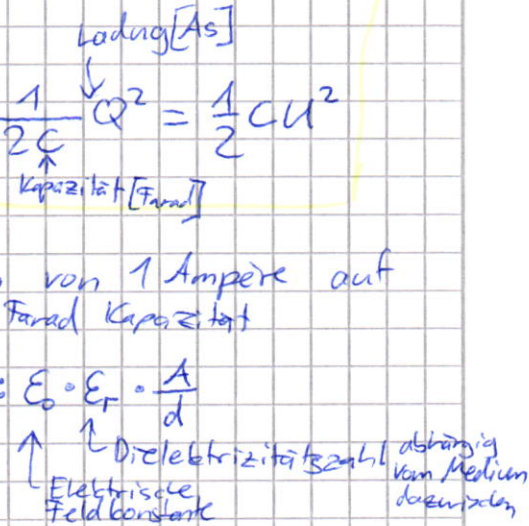 Ladung[As]
1/2C Q² = 1/2 CU²
Kapazität[Farad]
von 1 Ampère auf
Farad Kapazität
: ε₀ · εᵣ · A/d
Dielektrizitätszahl abhängig
vom Medium
dazwischen
Elektrische
Feldkonstante